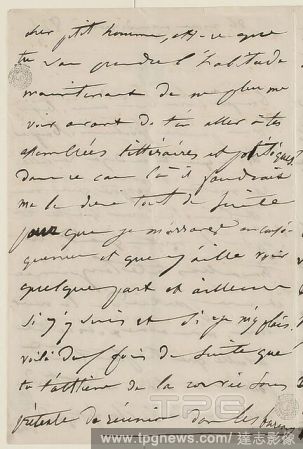 cher ptit homme, est-ce que
tu vas prendre l'habitude
maintenant de ne plus me
voir avant de t'en aller à tes
assemblées littéraires et politiques
dans ce cas là il faudrait
me le dire tout de suite
pour que je m'arrange en consé
quence et que j'aille voir
quelque part et ailleurs
si j'y suis et si je m'y plais.
voilà deux fois de suite que
tu t'abstiens de la
prétexte de réunion dans les bureaux
TPG
www.tpgnews.com/達志影像